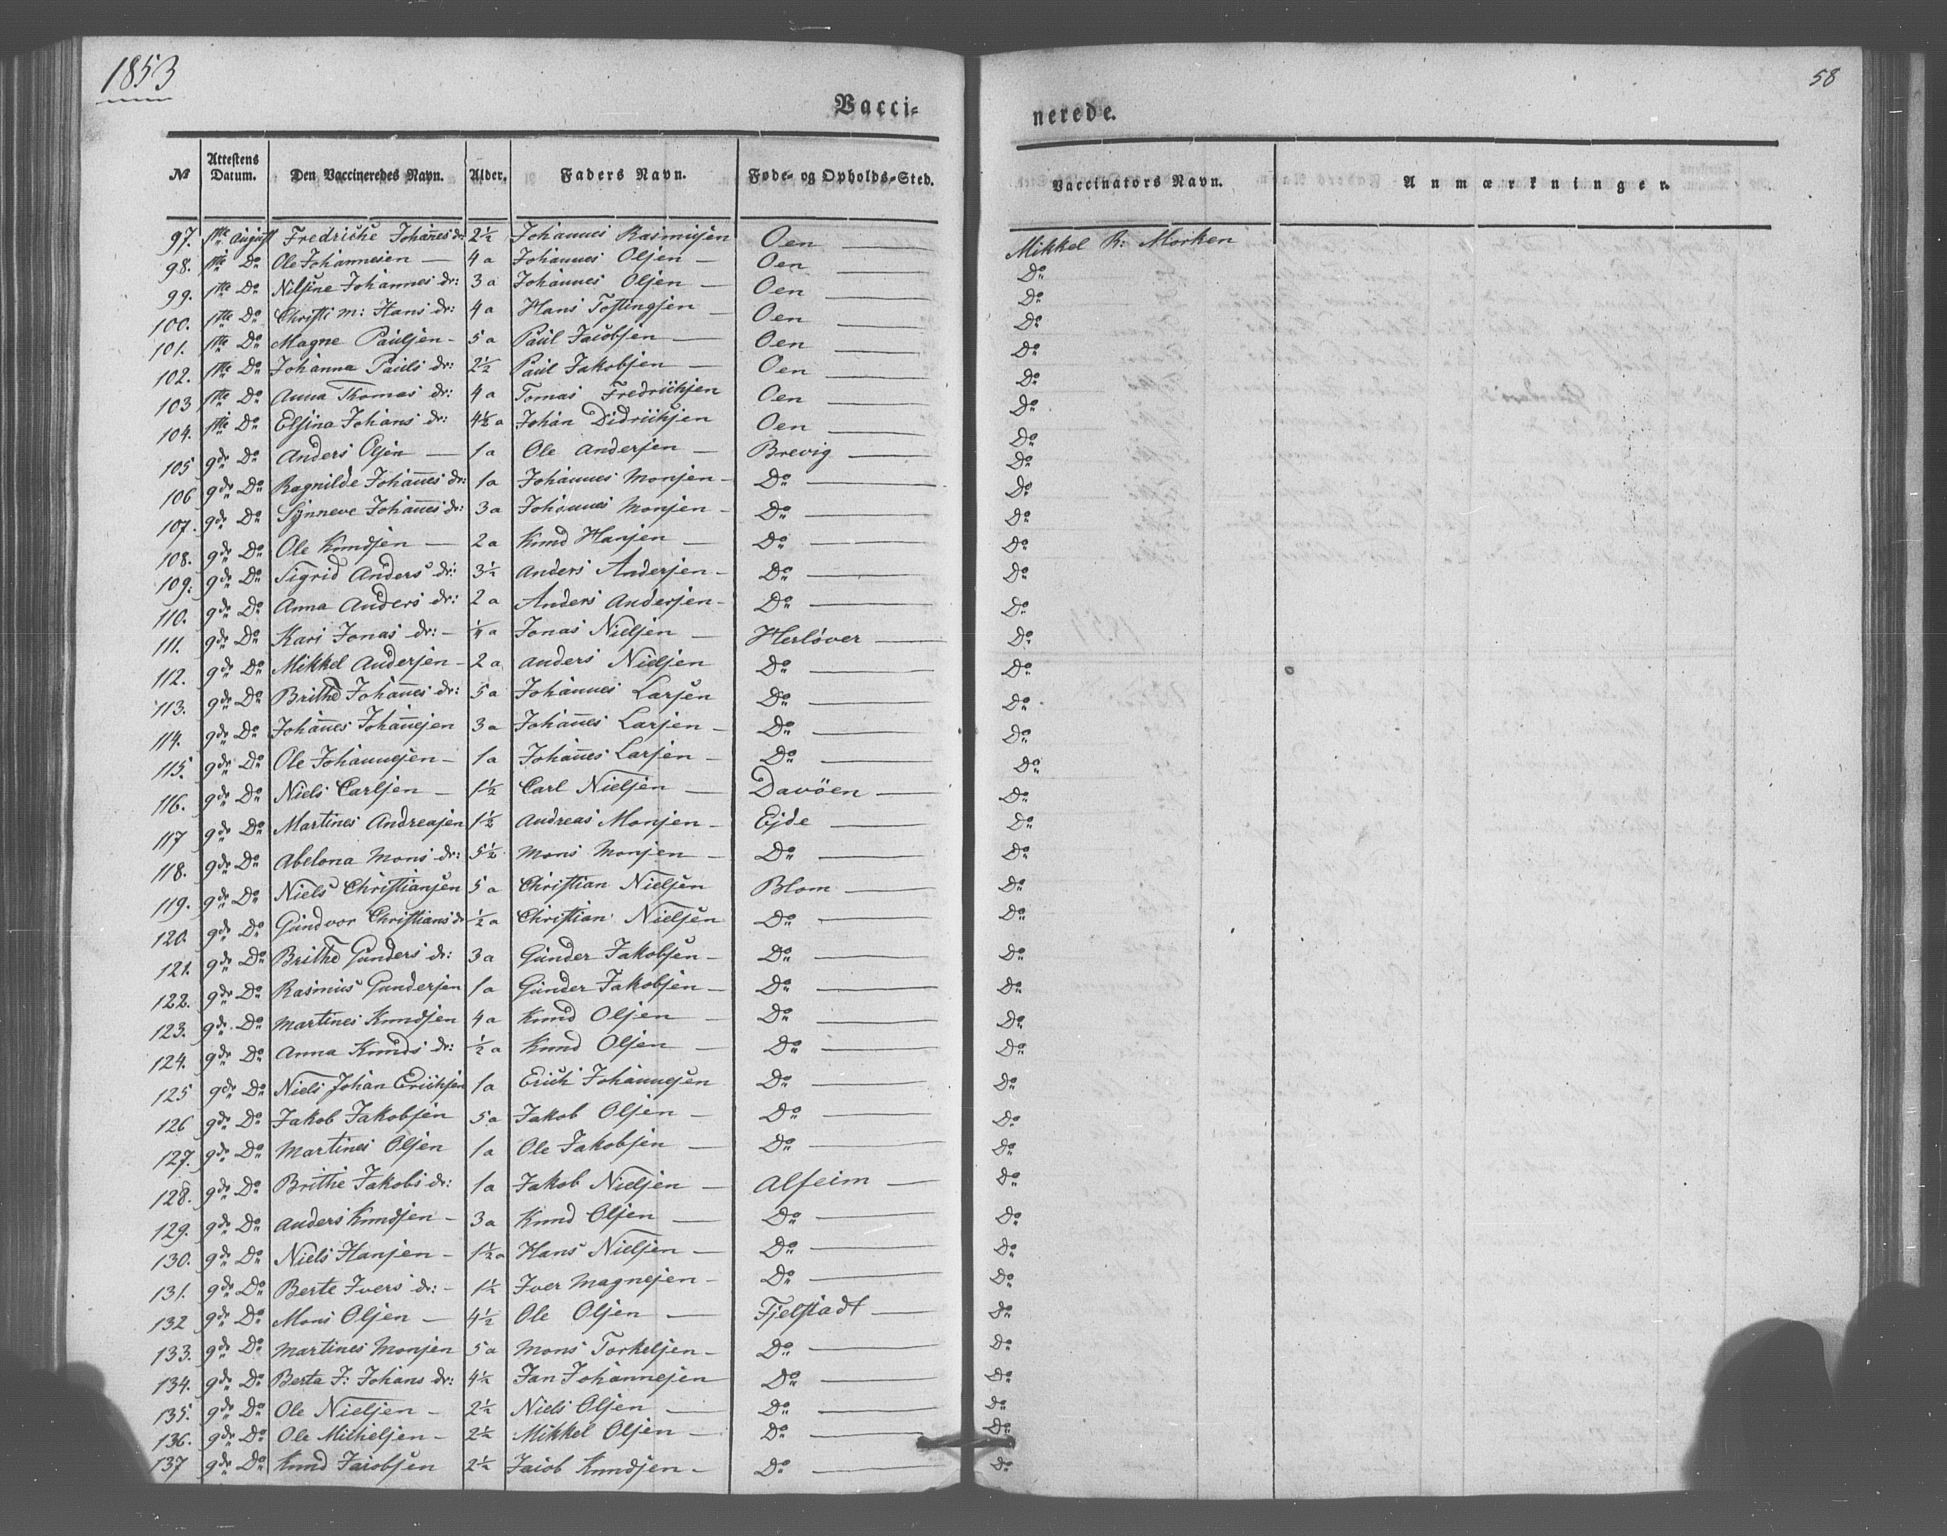 1853
58
Vacci-
nerede.
№ Attestens Datum. Den Vaccineredes Navn. Alder. Faders Navn. Føde- og Opholds-Sted. Vaccinators Navn. Anmærkninger.
97. 1ste August Fredriche Johanes dr 2½ Johannes Rasmusen Oen Mikkel R: Morken
98. 1ste Do Ole Johannesen 4 a Johannes Olsen Oen Do
99. 1ste Do Nilsine Johannes dr: 3 a Johannes Olsen Oen Do
100. 1ste Do Christi m: Hans dr: 4 a Hans Oen Do
101. 1ste Do Magne Paulsen 5 a Paul Jacobsen Oen Do
102. 1ste Do Johanna Pauls dr: 2½ Paul Jakobsen Oen Do
103 1ste Do Anna Thomas dr: 4 a Tomas Fredrichsen Oen Do
104. 1ste Do Elsina Johans dr: 4½ a Johan Didrichsen Oen Do
105 9de Do Anders Olsen 1 a Ole Andersen Brevig Do
106 9de Do Ragnilde Johanes dr: 1 a Johannes Monsen Do Do
107. 9de Do Synneve Johanes dr: 3 a Johannes Monsen Do Do
108. 9de Do Ole Knudsen 2 a Knud Hansen Do Do
109. 9de Do Sigrid Anders dr: 3½ Anders Andersen Do Do
110. 9de Do Anna Anders dr: 2 a Anders Andersen Do Do
111. 9de Do Kari Jonas dr: Jonas Nielsen Herløver Do
112. 9de Do Mikkel Andersen 2 a Anders Nielsen Do Do
113. 9de Do Brithe Johanes dr: 5 a Johannes Larsen Do Do
114. 9de Do Johanes Johanesen 3 a Johanes Larsen Do Do
115. 9de Do Ole Johannesen 1 a Johanes Larsen Do Do
116. 9de Do Niels Carlsen 1½ Carl Nielsen Davöen Do
117 9de Do Martines Andreasen 1½ Andreas Monsen Ejde Do
118. 9de Do Abelona Mons dr: 5½ Mons Monsen Do Do
119. 9de Do Niels Christiansen 5 a Christian Nielsen Blom Do
120. 9de Do Gundvor Christians dr ½ a Christian Nielsen Do Do
121. 9de Do Brithe Gunders dr: 3 a Gunder Jakobsen Do Do
122. 9de Do Rasmus Gundersen 1 a Gunder Jakobsen Do Do
123. 9de Do Martines Knudsen 4 a Knud Olsen Do Do
124. 9de Do Anna Knuds dr: ½ a Knud Olsen Do Do
125 9de Do Niels Johan Erichsen 1 a Erich Johannesen Do Do
126 9de Do Jakob Jakobsen 5 a Jakob Olsen Do Do
127. 9de Do Martines Olsen 1 a Ole Jakobsen Do Do
128. 9de Do Brithe Jakobs dr: 1 a Jakob Nielsen Alfeim Do
129. 9de Do Anders Knudsen 3 a Knud Olsen Do Do
130. 9de Do Niels Hansen 1½ a Hans Nielsen Do Do
131. 9de Do Berte Ivers dr: 1½ Iver Magnesen Do Do
132 9de Do Mons Olsen 4½ Ole Olsen Fjelstadt Do
133. 9de Do Martines Monsen 5 a Mons Torkelsen Do Do
134. 9de Do Berta J: Johans dr: 4½ Jan Johannesen Do Do
135. 9de Do Ole Nielsen 2½ Niels Olsen Do Do
136. 9de Do Ole Michelsen 2½ Mikkel Olsen Do Do
137 9de Do Knud Jacobsen 2½ Jacob Knudsen Do Do